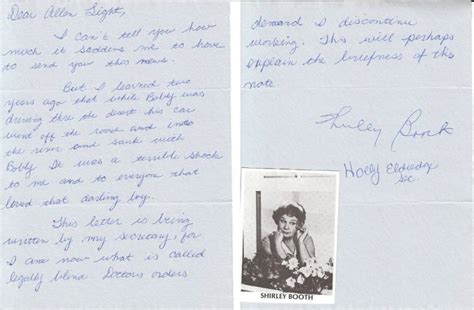 Dear Allen Light,
I can't tell you how
much it saddens me to have
to send you this news.
But I learned two
years ago that while Bobby was
driving thru the desert his car
went off the road and into
the river and sank with
Bobby. It was a terrible shock
to me and to everyone that
loved that darling boy.
This letter is being
written by my secretary, for
I am now what is called
legally blind. Doctors orders
demand I discontinue
working. This will perhaps
explain the briefness of this
note.
Shirley Booth
Holly Eldredge
Sec.
SHIRLEY BOOTH